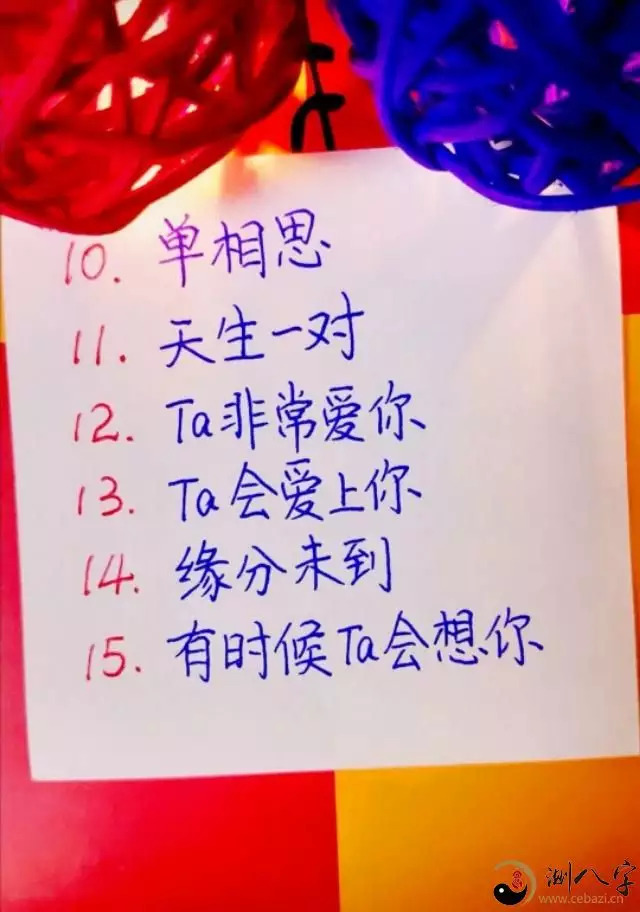 10. 单相思
11. 天生一对
12. Ta非常爱你
13. Ta会爱上你
14. 缘分未到
15. 有时候Ta会想你
测八字
www.cebazi.cn